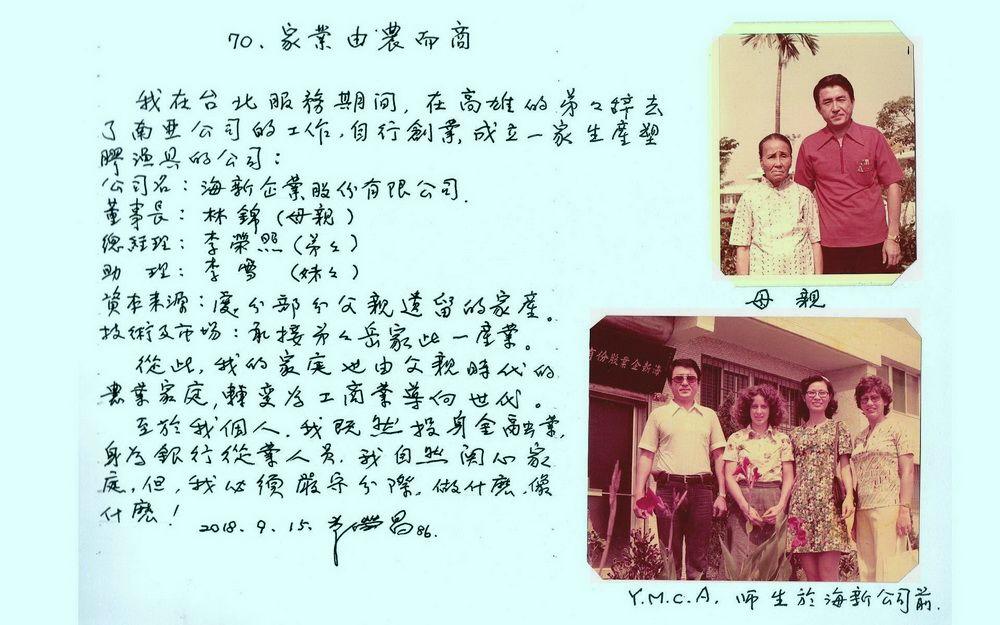 70. 家業由農而商
我在台北服務期間, 在高雄的弟々辞去
了南亜公司的工作, 自行創業, 成立一家生產塑
膠漁具的公司:
公司名: 海新企業股份有限公司.
董事長: 林錦 (母親)
總経理: 李榮照 (弟々)
助 理: 李雪 (妹々)
資本来源: 處分部分父親遺留的家產。
技術及市场: 承接弟々岳家此一產業。
從此, 我的家庭也由父親時代的
農業家庭, 轉変為工商業導向世代。
至於我個人, 我既然投身金融業,
身為銀行從業人员, 我自然関心家
庭, 但, 我必須嚴守分際, 做什麽, 像
什麽!
2018. 9. 15. 李榮昌 86.
母親
海新企業股份有
Y.M.C.A. 师生於海新公司前.